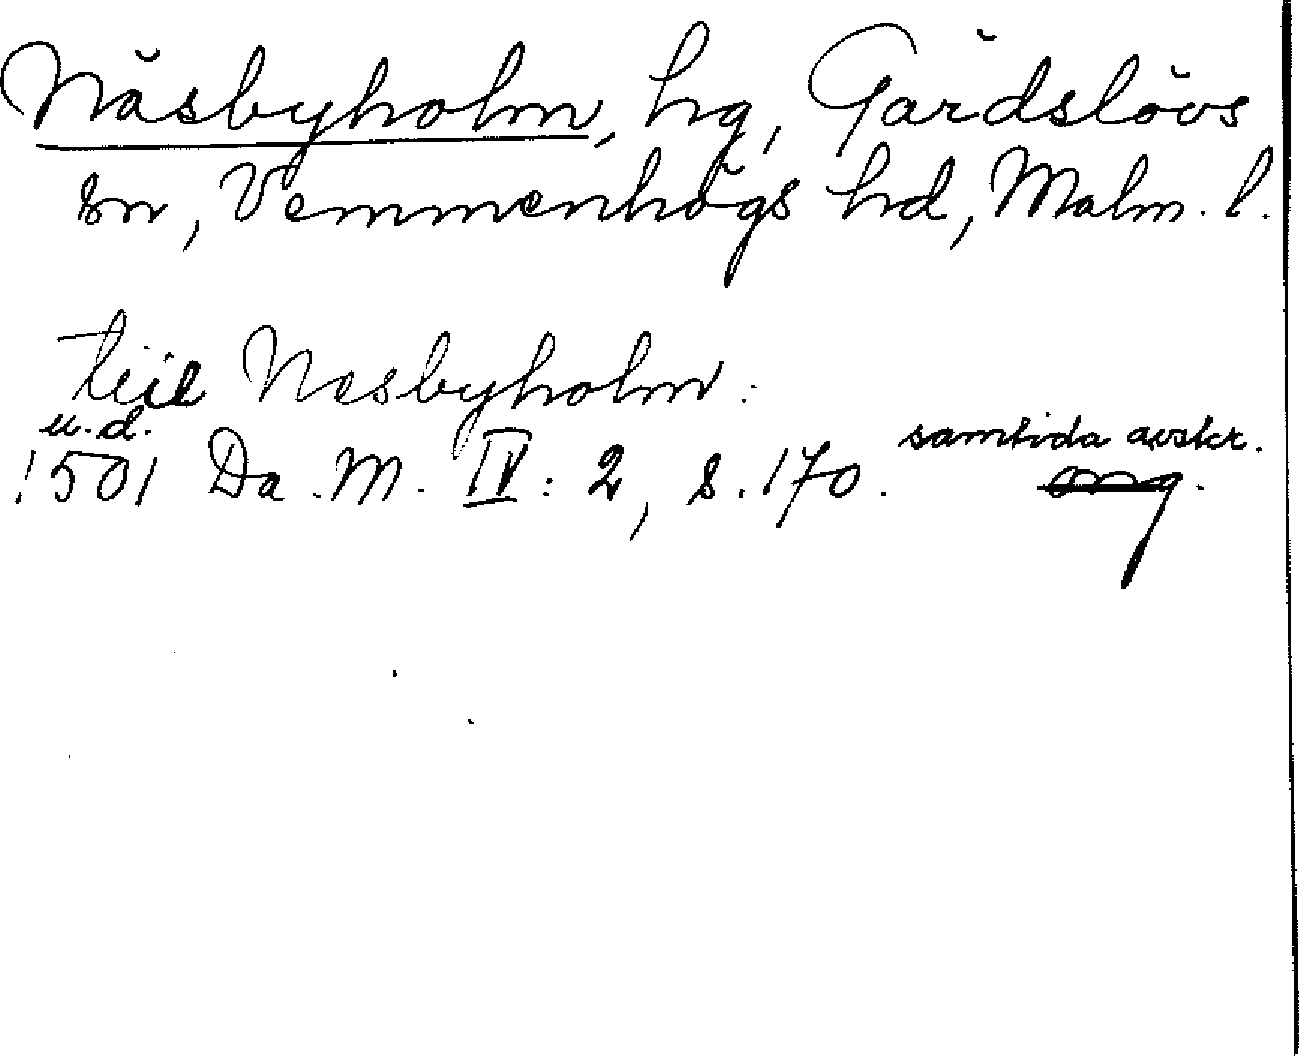 Näsbyholm, hg, Gärdslövs
sn, Vemmenhögs hd, Malm. l.
teil Nesbyholm.
u.d.
1501 Da. M. IV: 2, s. 170. samtida avskr.